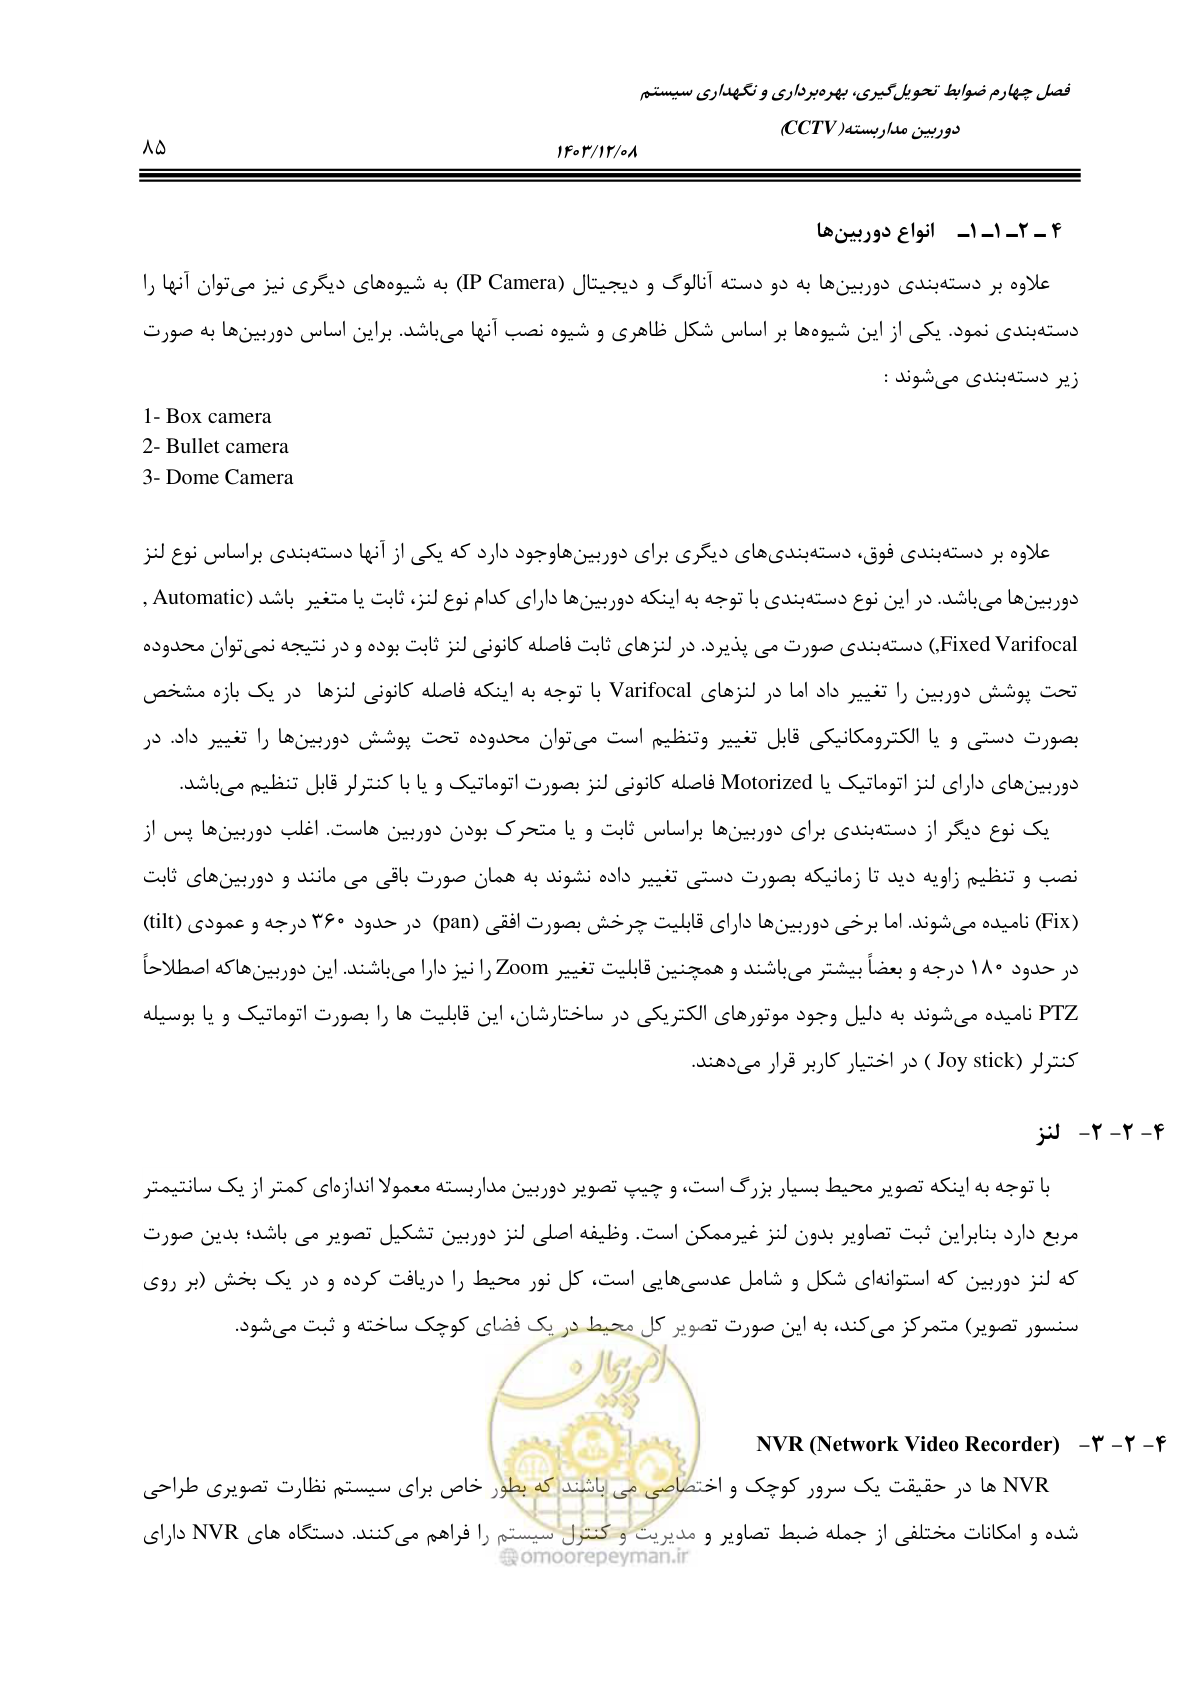 فصل چهارم ضوابط تحویل‌گیری، بهره‌برداری و نگهداری سیستم
دوربین مداربسته(CCTV)
۱۴۰۳/۱۲/۰۸
۸۵
۴ ـ ۲ـ ۱ـ ۱ـ انواع دوربین‌ها
علاوه بر دسته‌بندی دوربین‌ها به دو دسته آنالوگ و دیجیتال (IP Camera) به شیوه‌های دیگری نیز می‌توان آنها را
دسته‌بندی نمود. یکی از این شیوه‌ها بر اساس شکل ظاهری و شیوه نصب آنها می‌باشد. براین اساس دوربین‌ها به صورت
زیر دسته‌بندی می‌شوند :
1- Box camera
2- Bullet camera
3- Dome Camera
علاوه بر دسته‌بندی فوق، دسته‌بندی‌های دیگری برای دوربین‌هاوجود دارد که یکی از آنها دسته‌بندی براساس نوع لنز
دوربین‌ها می‌باشد. در این نوع دسته‌بندی با توجه به اینکه دوربین‌ها دارای کدام نوع لنز، ثابت یا متغیر باشد (Automatic ,
Fixed Varifocal,) دسته‌بندی صورت می پذیرد. در لنزهای ثابت فاصله کانونی لنز ثابت بوده و در نتیجه نمی‌توان محدوده
تحت پوشش دوربین را تغییر داد اما در لنزهای Varifocal با توجه به اینکه فاصله کانونی لنزها در یک بازه مشخص
بصورت دستی و یا الکترومکانیکی قابل تغییر وتنظیم است می‌توان محدوده تحت پوشش دوربین‌ها را تغییر داد. در
دوربین‌های دارای لنز اتوماتیک یا Motorized فاصله کانونی لنز بصورت اتوماتیک و یا با کنترلر قابل تنظیم می‌باشد.
یک نوع دیگر از دسته‌بندی برای دوربین‌ها براساس ثابت و یا متحرک بودن دوربین هاست. اغلب دوربین‌ها پس از
نصب و تنظیم زاویه دید تا زمانیکه بصورت دستی تغییر داده نشوند به همان صورت باقی می مانند و دوربین‌های ثابت
(Fix) نامیده می‌شوند. اما برخی دوربین‌ها دارای قابلیت چرخش بصورت افقی (pan) در حدود ۳۶۰ درجه و عمودی (tilt)
در حدود ۱۸۰ درجه و بعضاً بیشتر می‌باشند و همچنین قابلیت تغییر Zoom را نیز دارا می‌باشند. این دوربین‌هاکه اصطلاحاً
PTZ نامیده می‌شوند به دلیل وجود موتورهای الکتریکی در ساختارشان، این قابلیت ها را بصورت اتوماتیک و یا بوسیله
کنترلر (Joy stick ) در اختیار کاربر قرار می‌دهند.
۴- ۲- ۲- لنز
با توجه به اینکه تصویر محیط بسیار بزرگ است، و چیپ تصویر دوربین مداربسته معمولا اندازه‌ای کمتر از یک سانتیمتر
مربع دارد بنابراین ثبت تصاویر بدون لنز غیرممکن است. وظیفه اصلی لنز دوربین تشکیل تصویر می باشد؛ بدین صورت
که لنز دوربین که استوانه‌ای شکل و شامل عدسی‌هایی است، کل نور محیط را دریافت کرده و در یک بخش (بر روی
سنسور تصویر) متمرکز می‌کند، به این صورت تصویر کل محیط در یک فضای کوچک ساخته و ثبت می‌شود.
امور پیمان
۴- ۲- ۳- NVR (Network Video Recorder)
NVR ها در حقیقت یک سرور کوچک و اختصاصی می باشند که بطور خاص برای سیستم نظارت تصویری طراحی
شده و امکانات مختلفی از جمله ضبط تصاویر و مدیریت و کنترل سیستم را فراهم می‌کنند. دستگاه های NVR دارای
@omoorepeyman.ir